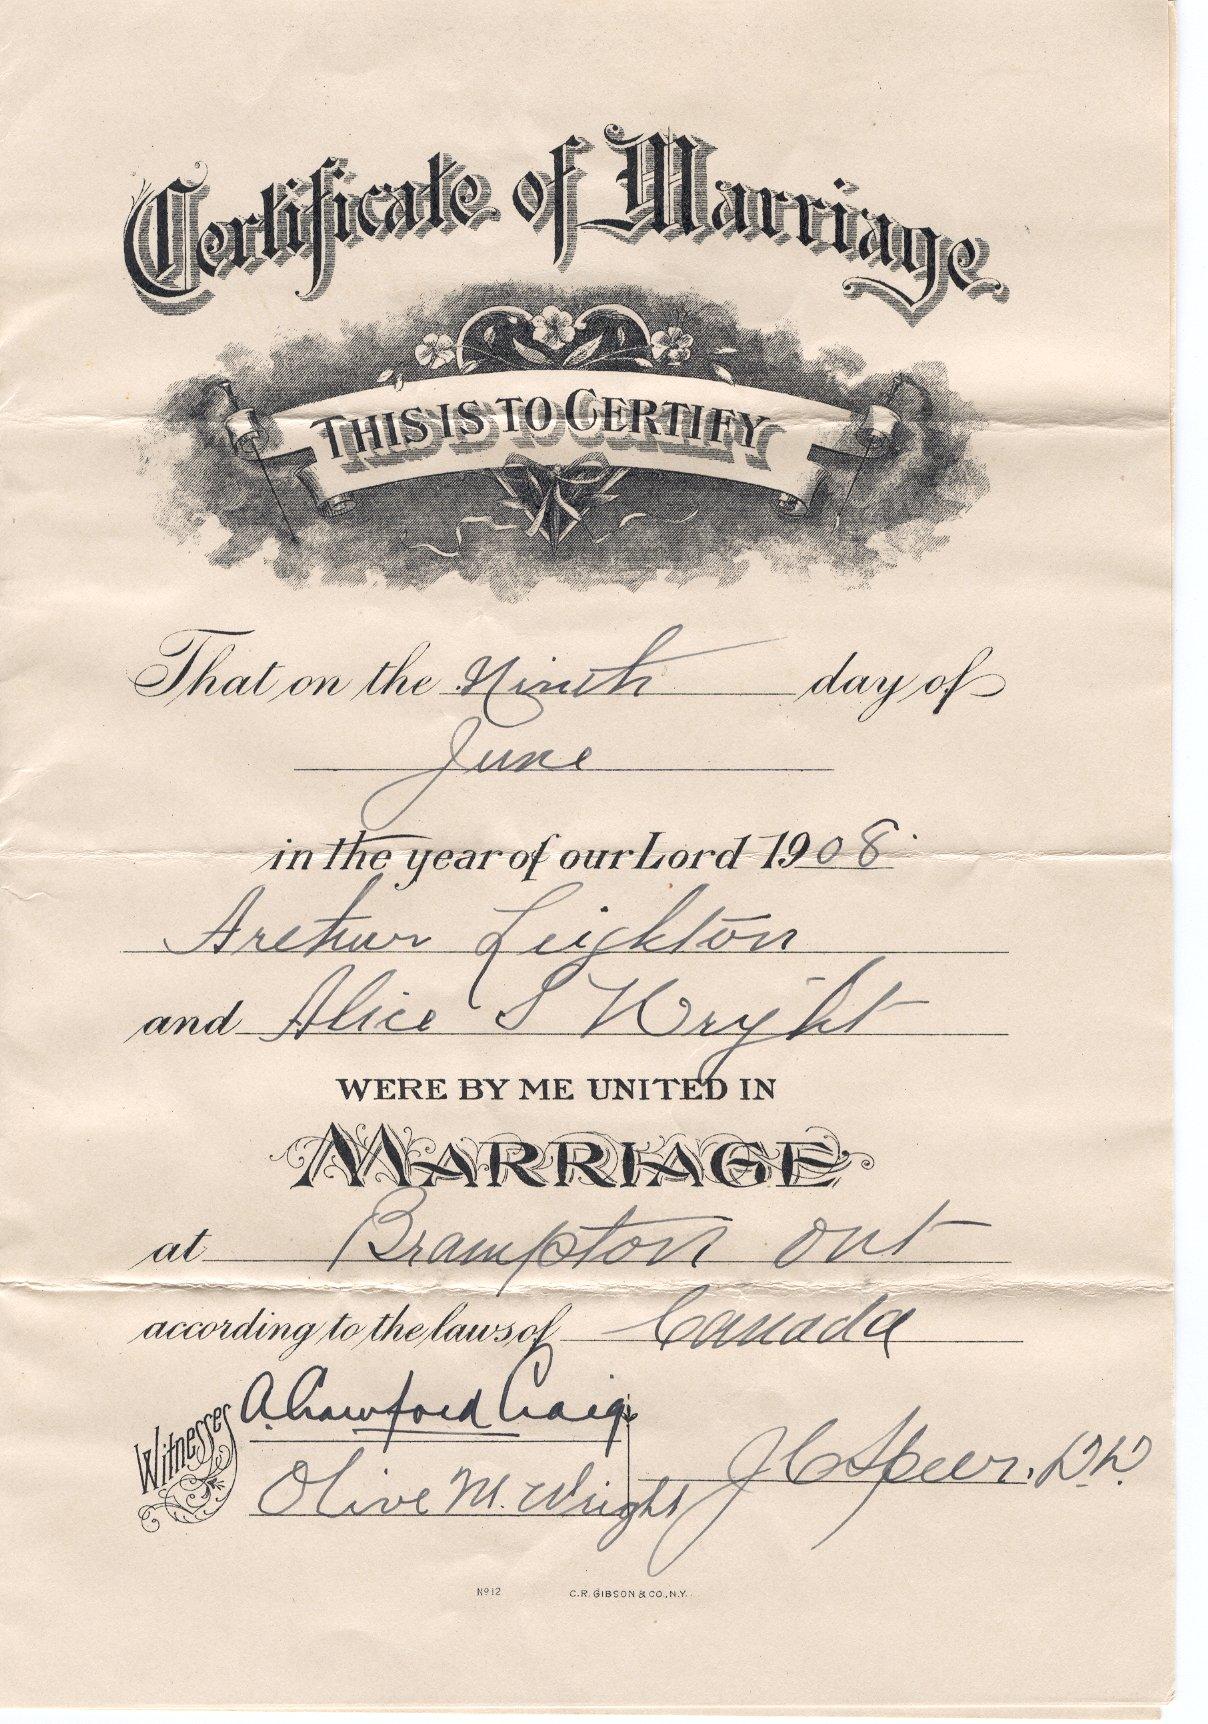 Certificate of Marriage
THIS IS TO CERTIFY
That on the Ninth day of
June
in the year of our Lord 1908
Arethur Leighton
and Alice S Wright
WERE BY ME UNITED IN
MARRIAGE
at Brampton Ont
according to the laws of Canada
Witnesses
A. Crawford Craig
Olive M. Wright
J C Speer, D.D.
No 12 C.R. GIBSON & CO., N.Y.